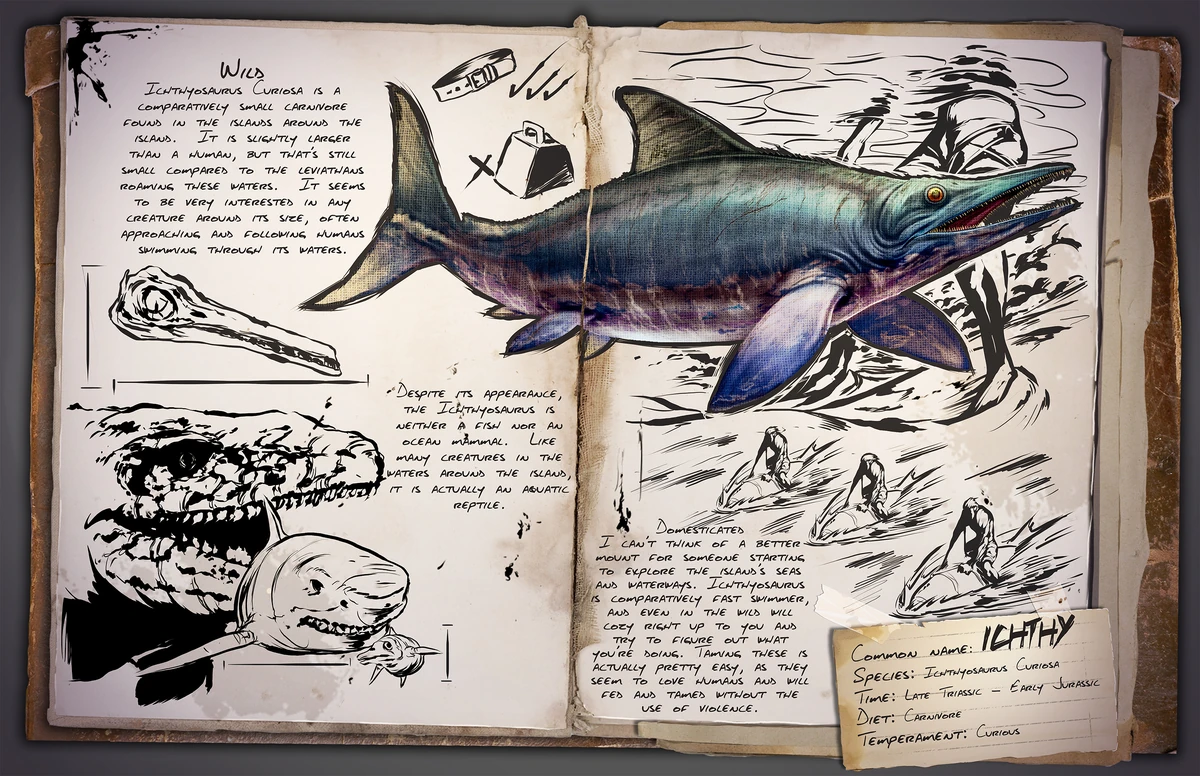 Wild
Ichthyosaurus Curiosa is a
comparatively small carnivore
found in the islands around the
island. It is slightly larger
than a human, but that's still
small compared to the leviathans
roaming these waters. It seems
to be very interested in any
creature around its size, often
approaching and following humans
swimming through its waters.
Despite its appearance,
the Ichthyosaurus is
neither a fish nor an
ocean mammal. Like
many creatures in the
waters around the island,
it is actually an aquatic
reptile.
Domesticated
I can't think of a better
mount for someone starting
to explore the island's seas
and waterways. Ichthyosaurus
is comparatively fast swimmer,
and even in the wild will
cozy right up to you and
try to figure out what
you're doing. Taming these is
actually pretty easy, as they
seem to love humans and will
fed and tamed without the
use of violence.
Common name: ICHTHY
Species: Ichthyosaurus Curiosa
Time: Late Triassic – Early Jurassic
Diet: Carnivore
Temperament: Curious